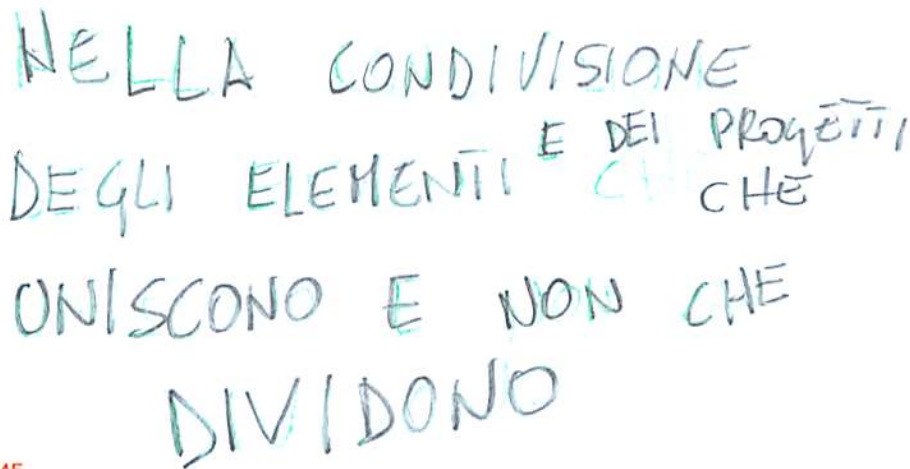 NELLA CONDIVISIONE
DEGLI ELEMENTI E DEI PROGETTI
CHE
UNISCONO E NON CHE
DIVIDONO